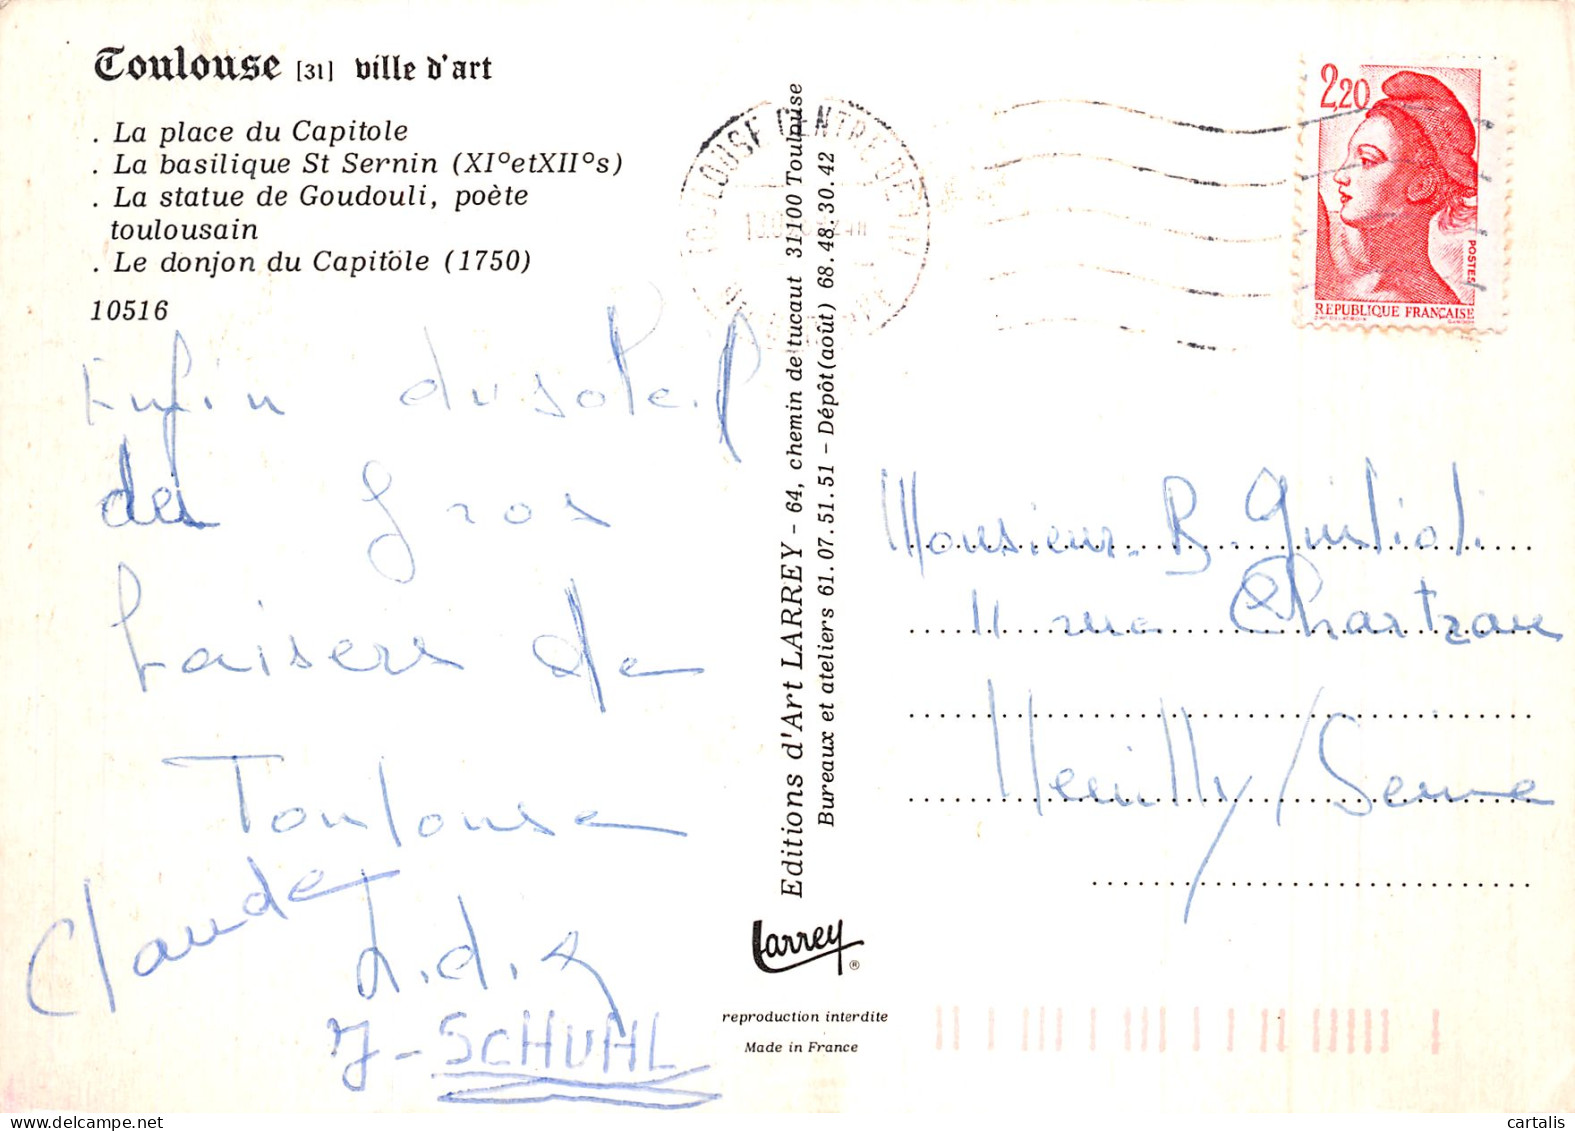 Toulouse [31] ville d'art
. La place du Capitole
. La basilique St Sernin (XI°etXII°s)
. La statue de Goudouli, poète
toulousain
. Le donjon du Capitole (1750)
10516
Enfin du soleil
des gros
baisers de
Toulouse
Claude
J-SCHUHL
Editions d'Art LARREY - 64, chemin de tucaut 31100 Toulouse
Bureaux et ateliers 61.07.51.51 - Dépôt(août) 68.48.30.42
Larrey ®
reproduction interdite
Made in France
TOULOUSE CENTRE DE TRI
2,20
POSTES
REPUBLIQUE FRANÇAISE
Monsieur B. Guilioli
11 rue Chartran
Neuilly/Seine
cartalis